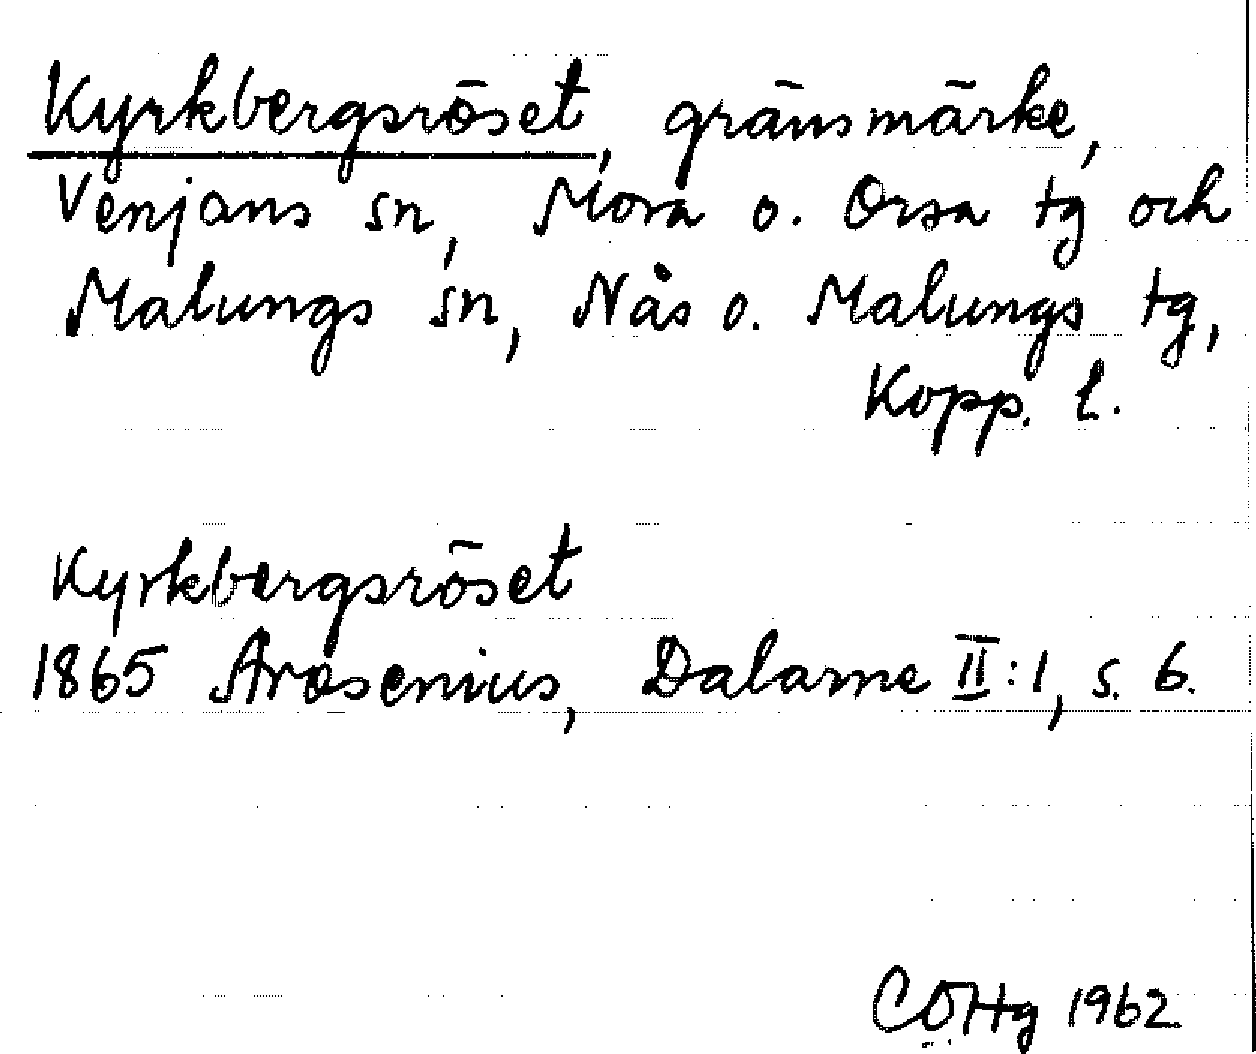 Kyrkbergsröset, gränsmärke,
Venjans sn, Mora o. Orsa tg och
Malungs sn, Nås o. Malungs tg,
Kopp. l.
Kyrkbergsröset
1865 Arosenius, Dalarne II:1, s. 6.
CÖHg 1962